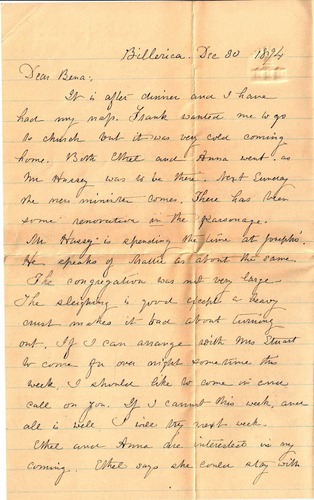 Billerica. Dec 30 1894
Dear Bena:
It is after dinner and I have
had my nap. Frank wanted me to go
to church but it was very cold coming
home. Both Ethel and Anna went as
Mr Hussey was to be there. Next Sunday
the new minister comes. There has been
some renovation in the parsonage.
Mr Hussey is spending the time at Joseph's.
He speaks of Mattie as about the same.
The congregation was not very large
The sleighing is good except a heavy
crust makes it bad about turning
out. If I can arrange with Mrs Stuart
to come for over night sometime this
week, I should like to come in and
call on you. If I cannot this week, and
all is well, I will try next week.
Ethel and Anna are interested in my
coming. Ethel says she could stay with